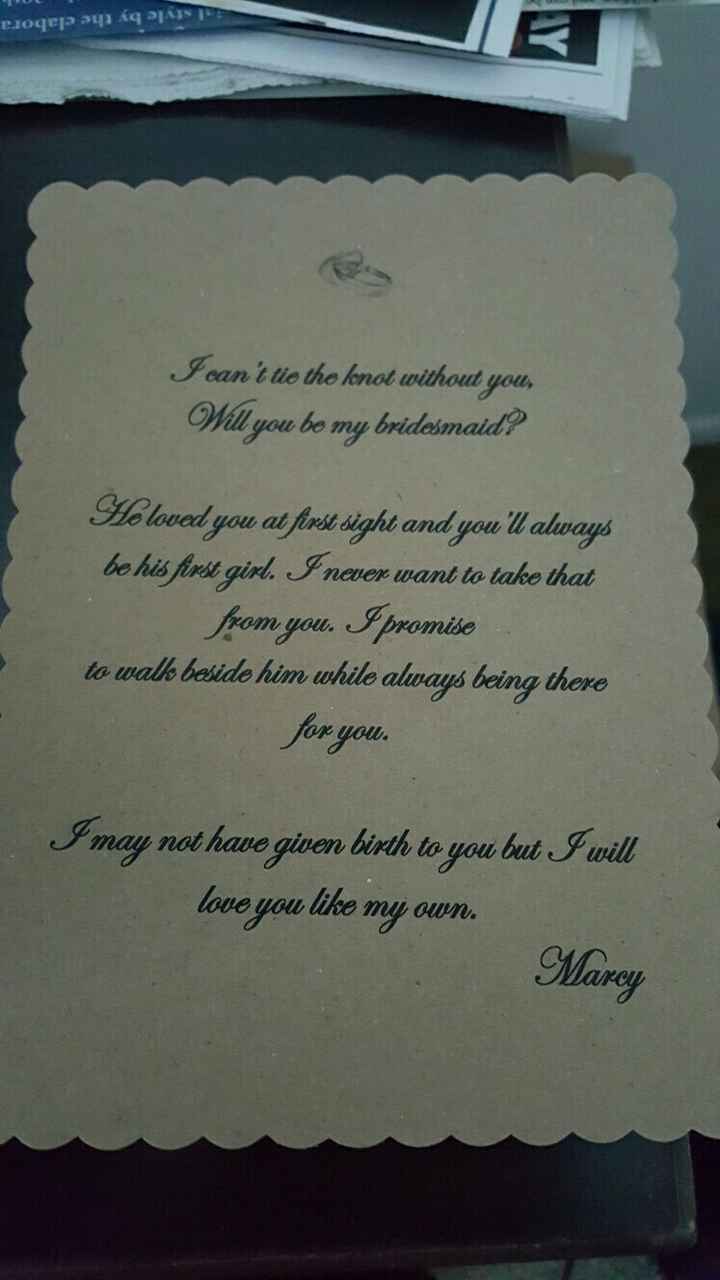 ial style by the elabora
AY
I can't tie the knot without you,
Will you be my bridesmaid?
He loved you at first sight and you'll always
be his first girl. I never want to take that
from you. I promise
to walk beside him while always being there
for you.
I may not have given birth to you but I will
love you like my own.
Marcy